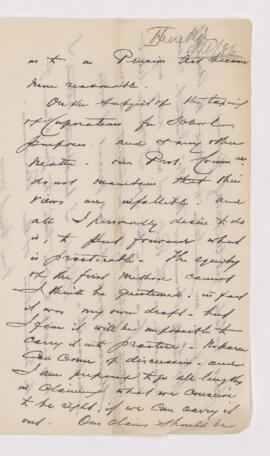 as to a Pension Act became
more reasonable.
On the subject of the taxing
of Corporations for School
purposes. and of any other
matter. our Prot. Comm
do not maintain that their
views are infallible. and
all I personally desire to do
is, to put forward what
is practicable. The equity
of the first method cannot
I think be questioned. in fact
it was my own draft. but
I fear it will be impossible to
carry it into practice.
can come of discussion. and
I am prepared to go all lengths
in claiming what we conceive
to be right, if we can carry it
out. Our claims should be